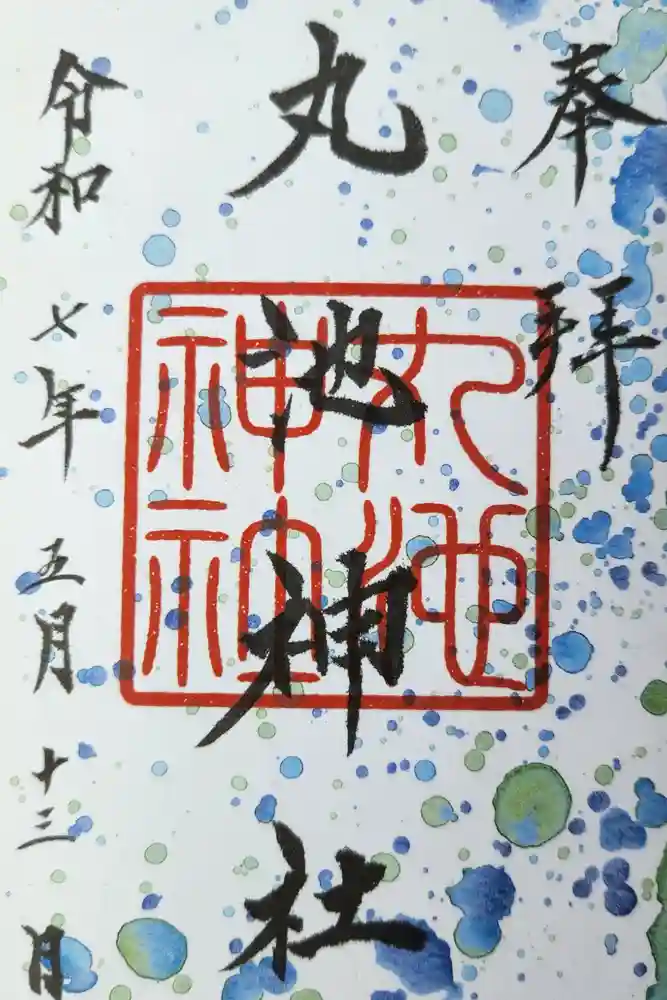 奉拝
丸池神社
丸池神社
令和七年五月十三月